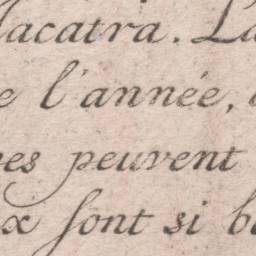 Jacatra. La
e l'année,
es peuvent
x sont si b